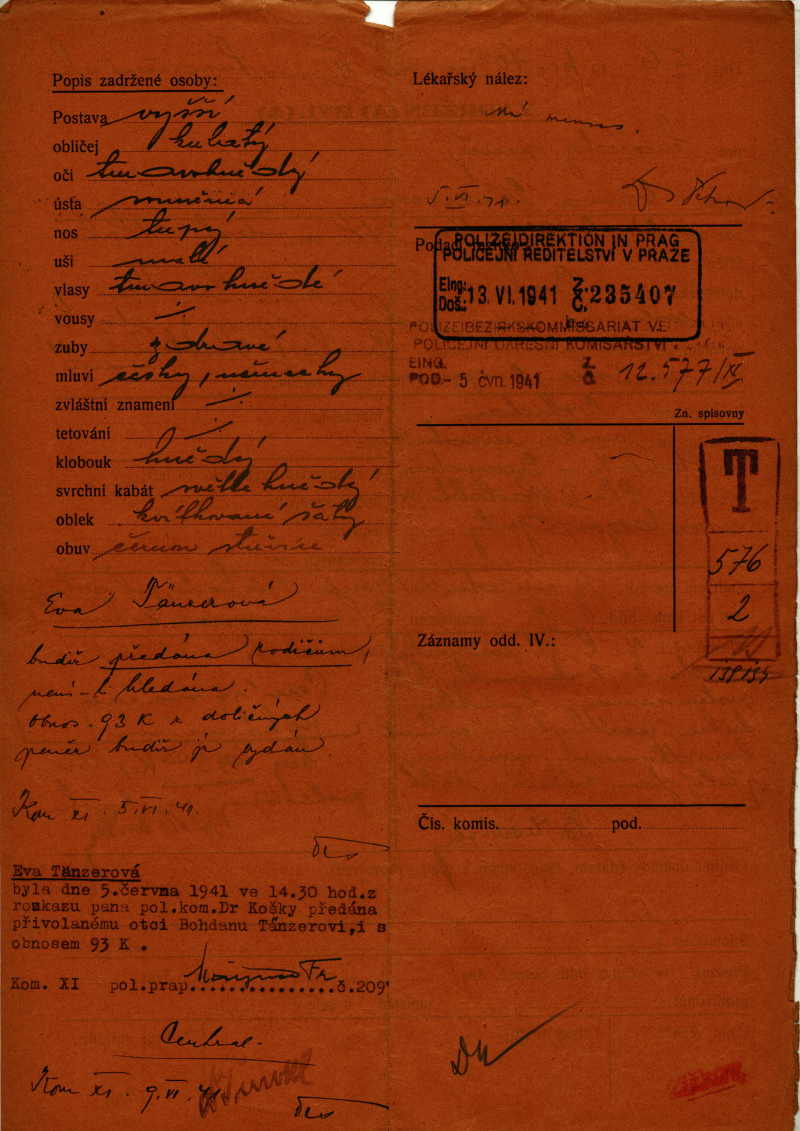 Popis zadržené osoby:
Postava vyšší
obličej kulatý
oči tmavohnědý
ústa souměrná
nos tupý
uši malé
vlasy tmavohnědé
vousy ./.
zuby zdravé
mluví česky, německy
zvláštní znamení ./.
tetování ./.
klobouk hnědý
svrchní kabát světle hnědý
oblek kvítkované šaty
obuv černou střevíce
Eva Tänzerová
budiž předána rodičům,
není-li hledána.
Obnos 93 K z doličných
peněz budiž jí vydán.
Kom XI. 5.VI.41.
Eva Tänzerová
byla dne 5.června 1941 ve 14.30 hod.z
rozkazu pana pol.kom.Dr Košky předána
přivolanému otci Bohdanu Tänzerovi,i s
obnosem 93 K .
Kom. XI pol.prap................č.209
Central.
Kom XI. 9.VI.41
Lékařský nález:
má menses.
5.VI.41.
POLIZEIDIREKTION IN PRAG
POLICEJNÍ ŘEDITELSTVÍ V PRAZE
Eing:
Doš.: 13. VI. 1941 Z.
Č. 235407
POLIZEIBEZIRKSKOMMISSARIAT
POLICEJNÍ OKRESNÍ KOMISAŘSTVÍ
EING.
POD. - 5 čvn. 1941 Z.
Č. 12.577/XI
Zn. spisovny
T
576
2
Záznamy odd. IV.:
Čís. komis. pod.